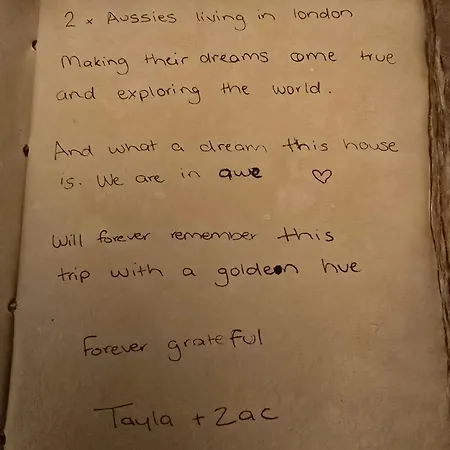 2 x Aussies living in london
Making their dreams come true
and exploring the world.
And what a dream this house
is. We are in awe ♡
Will forever remember this
trip with a golden hue
Forever grateful
Tayla + Zac